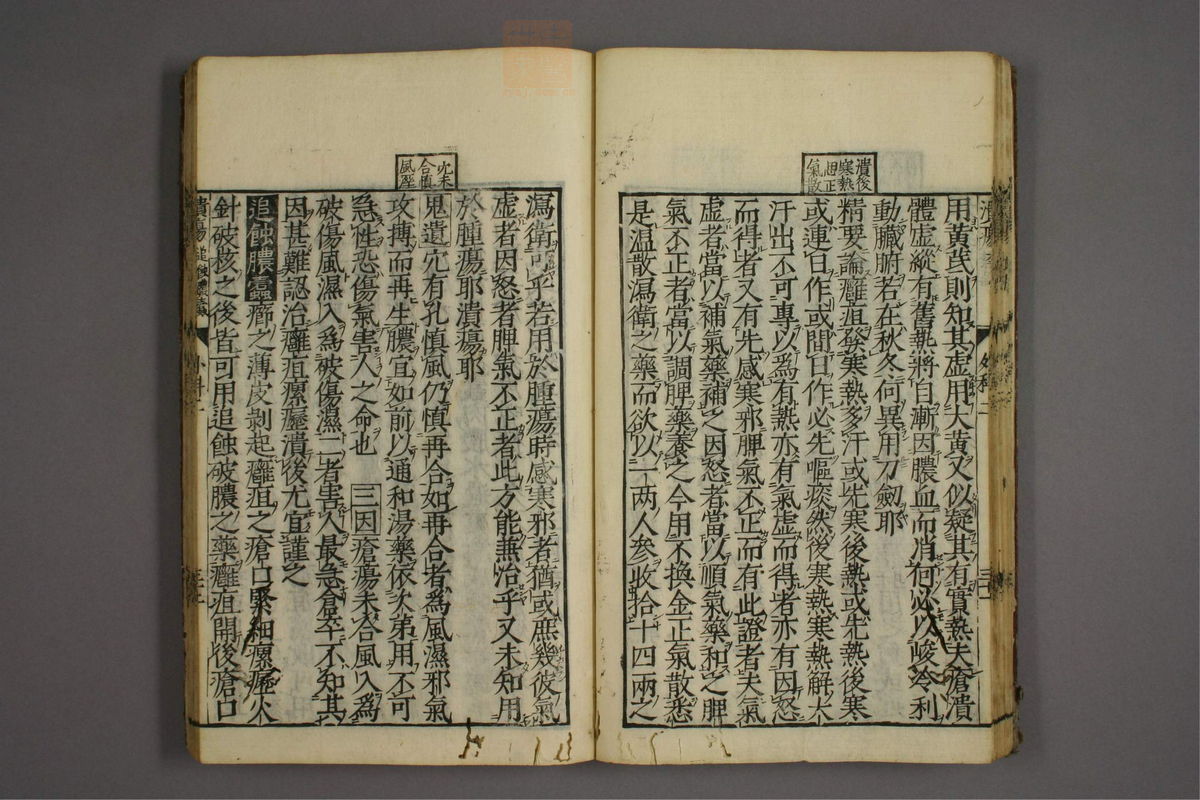 潰後
寒熱
正
氣散
用黃芪則知其虛用大黃又似疑其有實熱夫瘡潰
體虛縱有舊熱將自漸因膿血而消何必以峻冷利
動臟腑若在秋冬何異用刀劒耶
精要論癰疽發寒熱多汗或先寒後熱或先熱後寒
或連日作或間日作必先嘔痰然後寒熱寒熱解大
汗出不可專以爲有熱亦有氣虛而得者亦有因怒
而得者又有先感寒邪脾氣不正而有此證者夫氣
虛者當以補氣藥補之因怒者當以順氣藥和之脾
氣不正者當以調脾藥養之今用不換金正氣散悉
是温散瀉衛之藥而欲以一两人參收拾十四兩之
未
合慎
風
瀉衛可乎若用於腫瘍時感寒邪者猶或庶幾彼氣
虛者因怒者脾氣不正者此方能兼治乎又未知用
於腫瘍耶潰瘍耶
鬼遺穴有孔慎風仍慎再合如再合者爲風濕邪氣
攻摶而再生膿宜如前以通和湯藥依次第用不可
急性恐傷氣害人之命也 三因瘡瘍未合風入爲
破傷風濕入爲破傷濕二者害人最急倉卒不知其
因甚難認治癰疽瘰癧潰後尤宜謹之
追蝕膿蠹癤之薄皮剝起癰疽之瘡口緊細瘰癧火
針破核之後皆可用追蝕破膿之藥癰疽開後瘡口
潰瘍 追蝕膿蠹 外科二